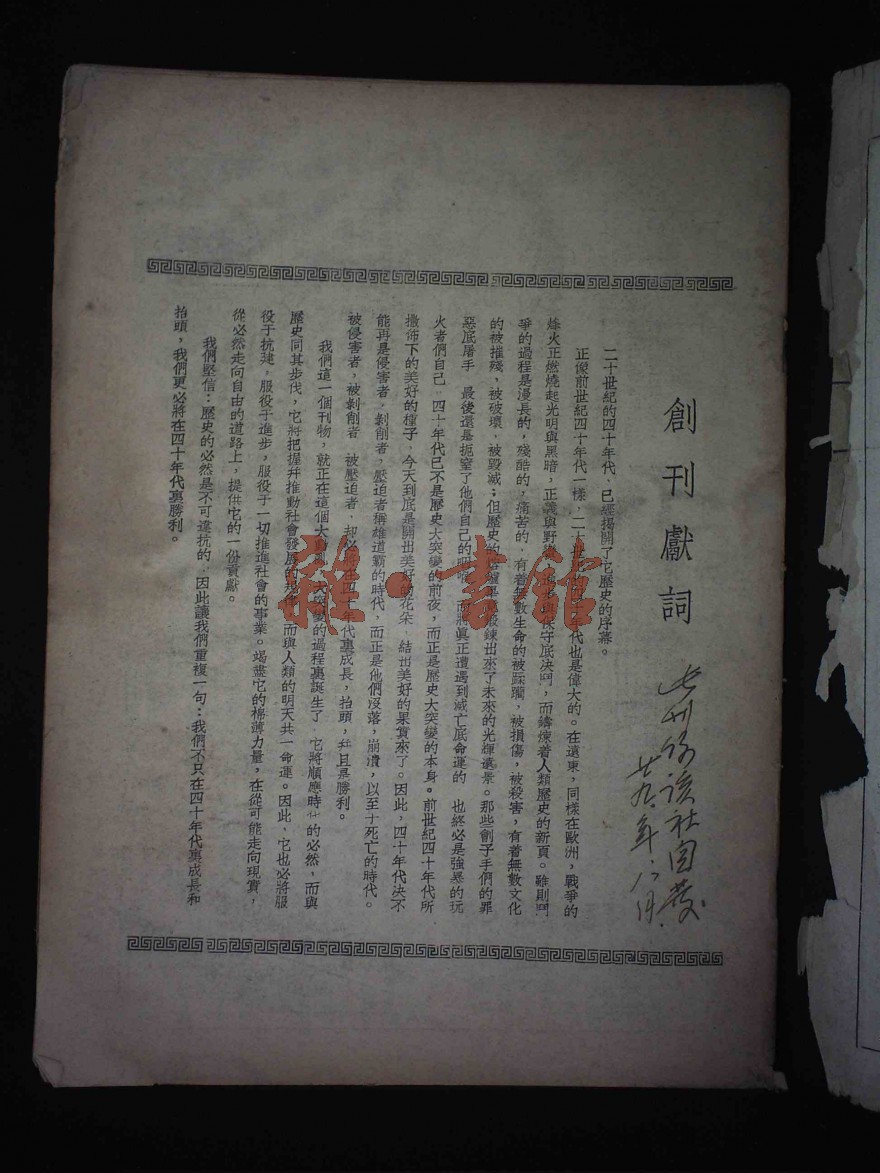 創刊獻詞
二十世紀的四十年代、已經揭開了它歷史的序幕。
正像前世紀四十年代一樣，二十世紀的四十年代也是偉大的。在遠東，同樣在歐洲，戰爭的
烽火正燃燒起光明與黑暗，正義與野蠻，進步與保守底決鬥，而鑄煉着人類歷史的新頁。雖則鬥
爭的過程是漫長的，殘酷的，痛苦的、有着無數生命的被蹂躪，被損傷，被殺害，有着無數文化
的被摧殘、被破壞、被毀滅；但歷史的 鍛鍊出來了未來的光輝遠景。那些劊子手們的罪
惡底屠手 最後還是扼窒了他們自己的咽喉 而將眞正遭遇到滅亡底命運的 也終必是強暴的玩
火者們自己 四十年代已不是歷史大突變的前夜，而正是歷史大突變的本身。前世紀四十年代所
撒佈下的美好的種子、今天到底是開出美好的花朵 結出美好的果實來了。因此，四十年代決不
能再是侵害者、剝削者，壓迫者稱雄道霸的時代，而正是他們沒落，崩潰，以至于死亡的時代。
被侵害者，被剝削者 被壓迫者、却必將在四十年代裏成長，抬頭，幷且是勝利。
我們這一個刊物，就正在這個大 大突變的過程裏誕生了 它將順應時代的必然，而與
歷史同其步伐，它將把握幷推動社會發展的規律，而與人類的明天共一命運。因此、它也必將服
役于抗建，服役于進步，服役于一切推進社會的事業。竭盡它的棉薄力量，在從可能走向現實，
從必然走向自由的道路上，提供它的一份貢獻。
我們堅信：歷史的必然是不可違抗的、因此讓我們重複一句：我們不只在四十年代裏成長和
抬頭，我們更必將在四十年代裏勝利。
此刊係該社自費
廿九年、八月、
雜·書館